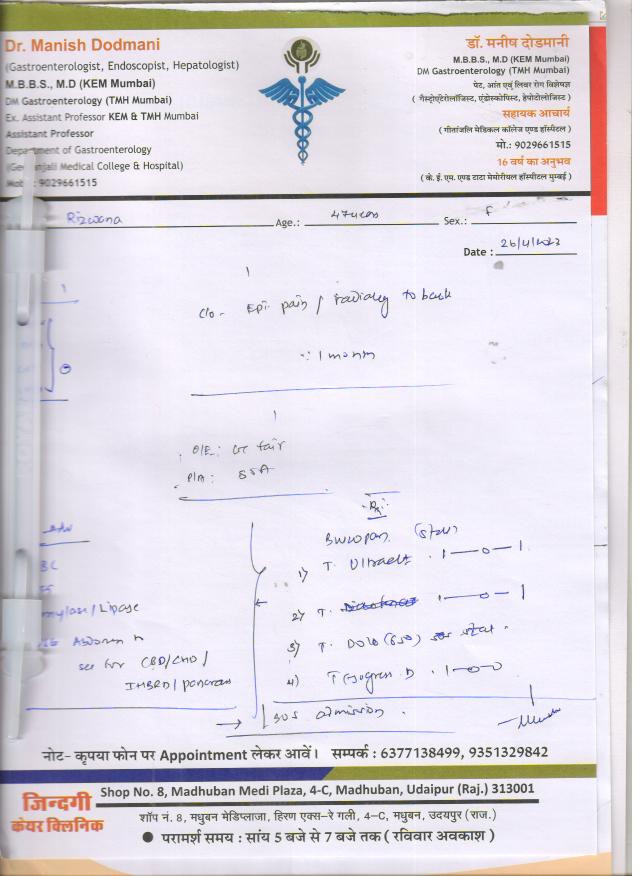 Dr. Manish Dodmani
(Gastroenterologist, Endoscopist, Hepatologist)
M.B.B.S., M.D (KEM Mumbai)
DM Gastroenterology (TMH Mumbai)
Ex. Assistant Professor KEM & TMH Mumbai
Assistant Professor
Department of Gastroenterology
Medical College & Hospital)
9029661515
डॉ. मनीष दोडमानी
M.B.B.S., M.D (KEM Mumbai)
DM Gastroenterology (TMH Mumbai)
पेट, आंत एवं लिवर रोग विशेषज्ञ
( गैस्ट्रोएंटेरोलॉजिस्ट, एंडोस्कोपिस्ट, हेपेटोलोजिस्ट )
सहायक आचार्य
( गीतांजलि मेडिकल कॉलेज एण्ड हॉस्पीटल )
मो.: 9029661515
16 वर्ष का अनुभव
( के. ई. एम. एण्ड टाटा मेमोरीयल हॉस्पीटल मुम्बई )
Rizwana Age.: 47 Sex.: F
Date : 26/4/2022
c/o - Epi pain / radiating to back
1 month
O/E: GC fair
P/A:
Rx
(stat)
1) T. 1-0-1
2) T. 1-0-1
3) T. DOLO (650) stat.
4) T. D. 1-0-0
Amylase/Lipase
see for CBD/CHD/
IHBRD/pancreas
SOS admission.
नोट- कृपया फोन पर Appointment लेकर आवें। सम्पर्क : 6377138499, 9351329842
जिन्दगी
केयर क्लिनिक
Shop No. 8, Madhuban Medi Plaza, 4-C, Madhuban, Udaipur (Raj.) 313001
शॉप नं. 8, मधुबन मेडिप्लाजा, हिरण एक्स-रे गली, 4-C, मधुबन, उदयपुर (राज.)
● परामर्श समय : सांय 5 बजे से 7 बजे तक ( रविवार अवकाश )